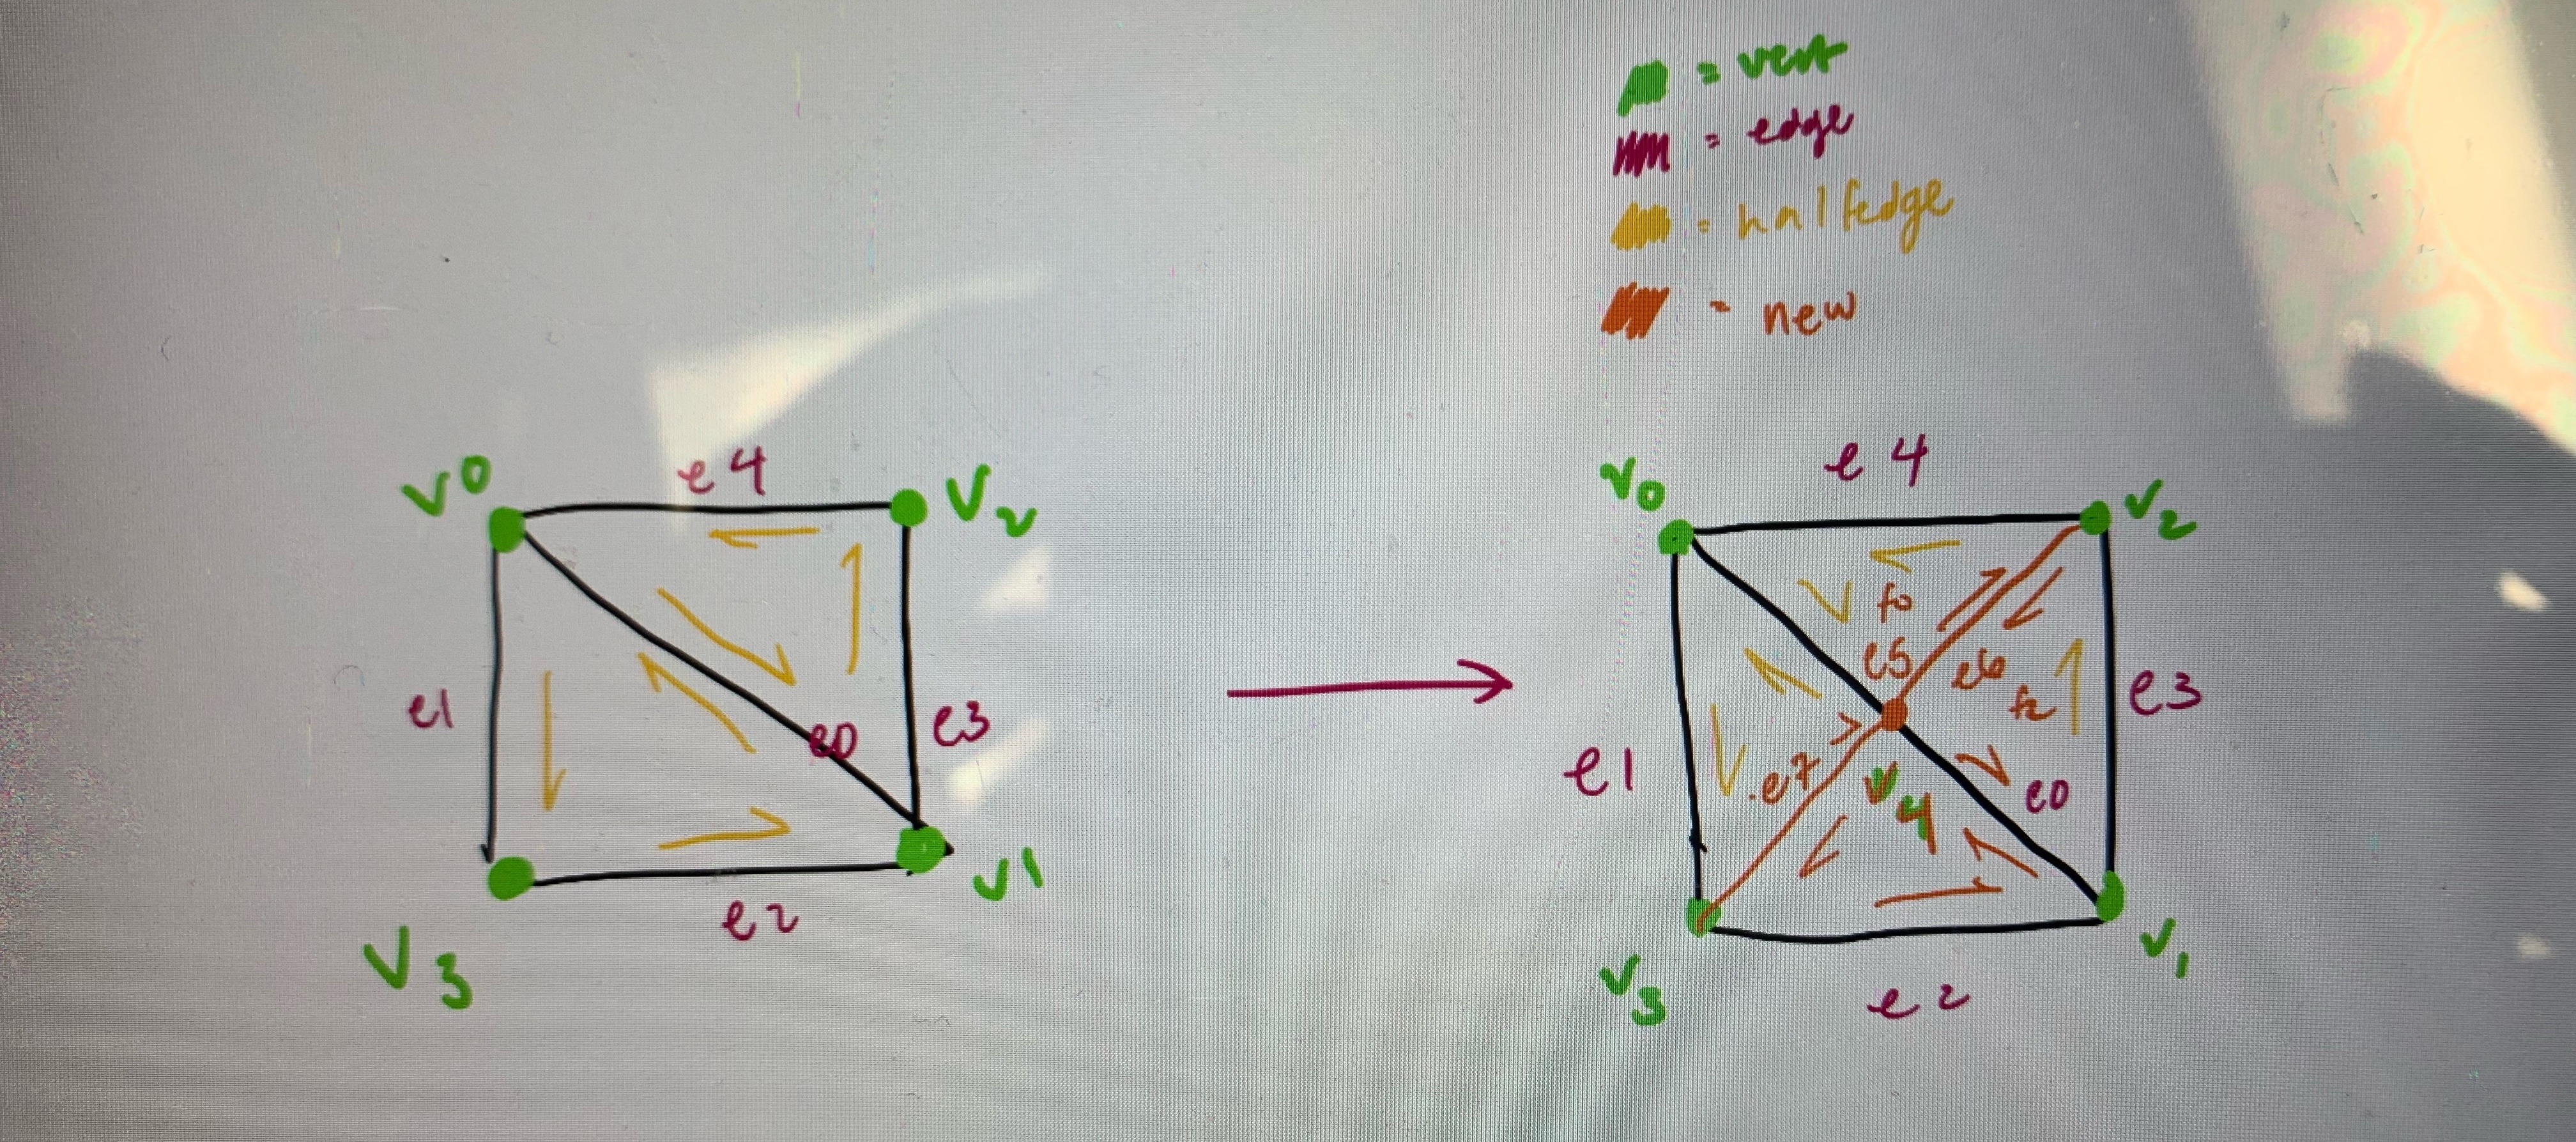 = vert
= edge
= halfedge
= new
v0
e4
v2
e1
e0
e3
v3
e2
v1
v0
e4
v2
f0
e5
e6
f2
e3
e1
e7
v4
e0
v3
e2
v1